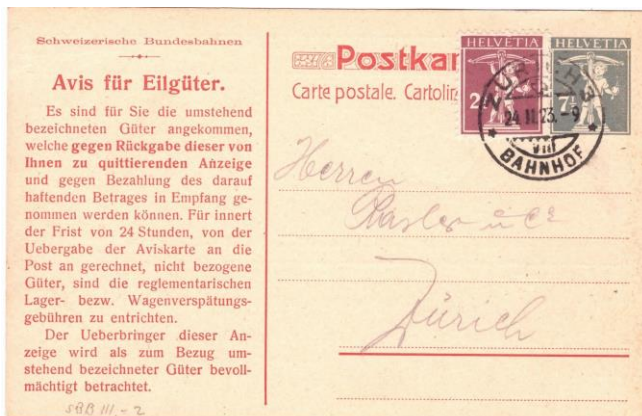 Schweizerische Bundesbahnen
Avis für Eilgüter.
Es sind für Sie die umstehend
bezeichneten Güter angekommen,
welche gegen Rückgabe dieser von
Ihnen zu quittierenden Anzeige
und gegen Bezahlung des darauf
haftenden Betrages in Empfang ge-
nommen werden können. Für innert
der Frist von 24 Stunden, von der
Uebergabe der Aviskarte an die
Post an gerechnet, nicht bezogene
Güter, sind die reglementarischen
Lager- bezw. Wagenverspätungs-
gebühren zu entrichten.
Der Ueberbringer dieser An-
zeige wird als zum Bezug um-
stehend bezeichneter Güter bevoll-
mächtigt betrachtet.
SBB III. - 2
Postkar
Carte postale. Cartolin
HELVETIA
HELVETIA
7½
24 II 23.-9
VIII
BAHNHOF
Herren
Zürich